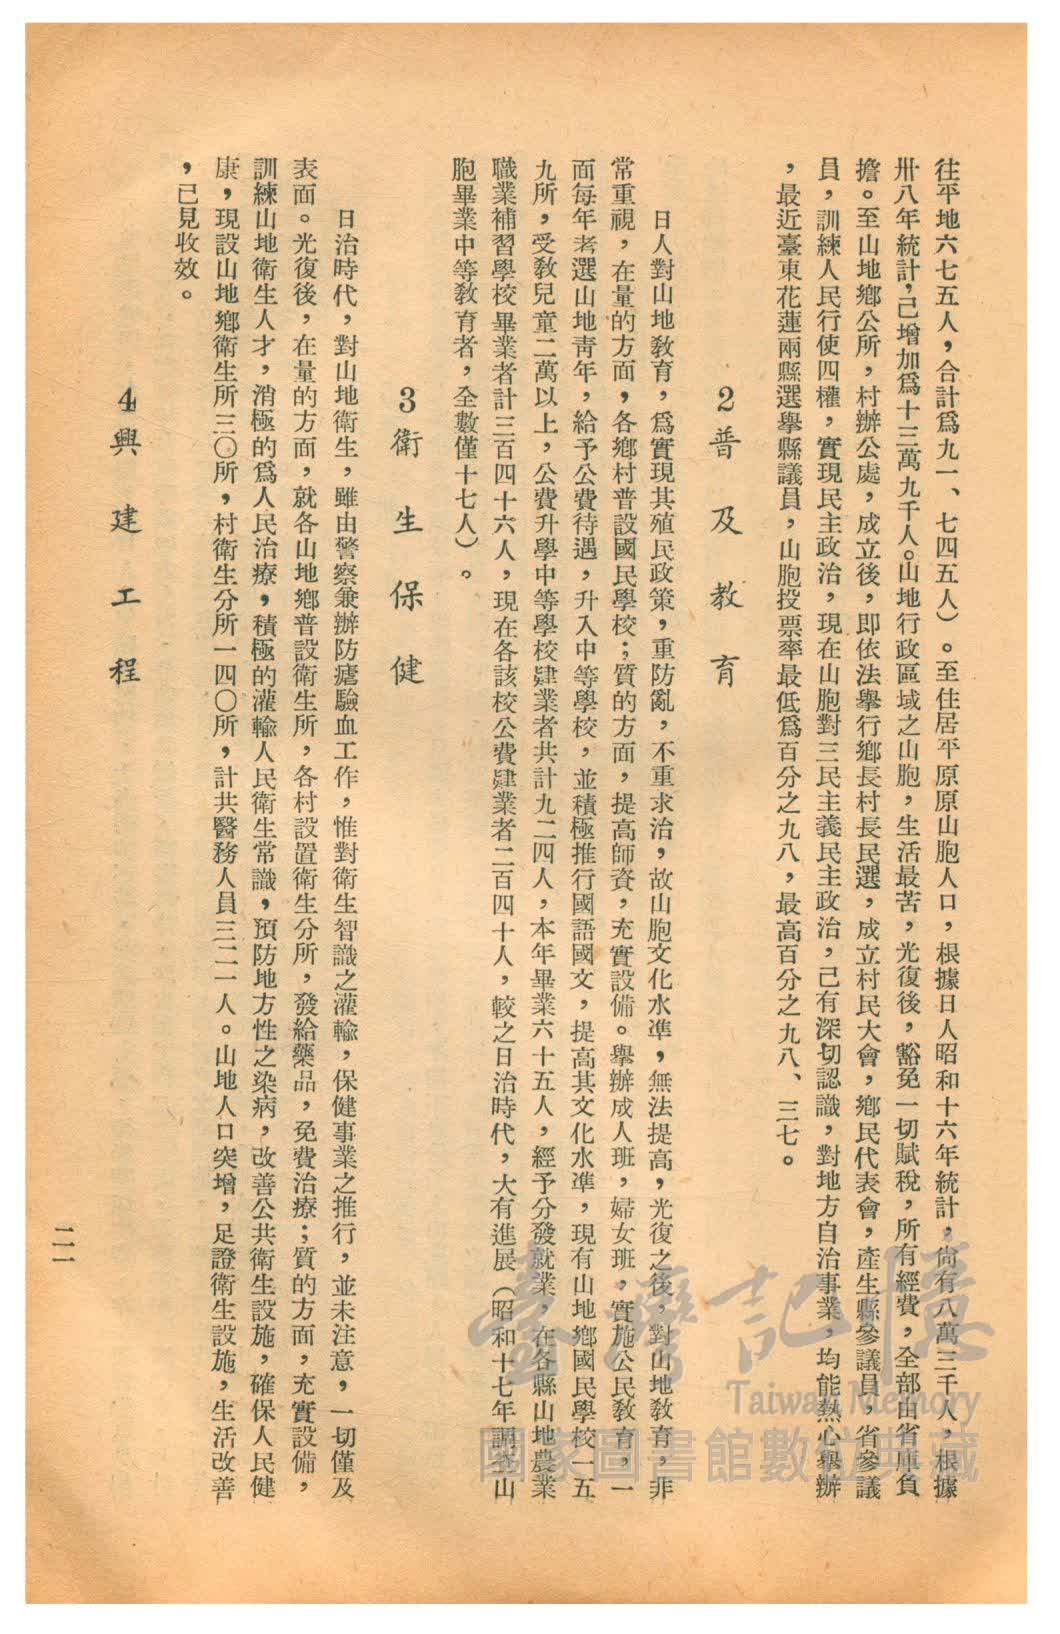 往平地六七五人，合計爲九一、七四五人）。至住居平原原山胞人口，根據日人昭和十六年統計，尙有八萬三千人，根據
卅八年統計，已增加爲十三萬九千人。山地行政區域之山胞，生活最苦，光復後，豁免一切賦稅，所有經費，全部由省庫負
擔。至山地鄉公所，村辦公處，成立後，即依法舉行鄉長村長民選，成立村民大會，鄉民代表會，產生縣參議員，省參議
員，訓練人民行使四權，實現民主政治，現在山胞對三民主義民主政治，已有深切認識，對地方自治事業，均能熱心舉辦
，最近臺東花蓮兩縣選舉縣議員，山胞投票率最低爲百分之九八，最高百分之九八、三七。
2普及教育
日人對山地教育，爲實現其殖民政策，重防亂，不重求治，故山胞文化水準，無法提高，光復之後，對山地教育，非
常重視，在量的方面，各鄉村普設國民學校；質的方面，提高師資，充實設備。舉辦成人班，婦女班，實施公民教育，一
面每年考選山地靑年，給予公費待遇，升入中等學校，並積極推行國語國文，提高其文化水準，現有山地鄉國民學校一五
九所，受教兒童二萬以上，公費升學中等學校肄業者共計九二四人，本年畢業六十五人，經予分發就業，在各縣山地農業
職業補習學校畢業者計三百四十六人，現在各該校公費肄業者二百四十人，較之日治時代，大有進展（昭和十七年調查山
胞畢業中等教育者，全數僅十七人）。
3衛生保健
日治時代，對山地衛生，雖由警察兼辦防瘧驗血工作，惟對衛生智識之灌輸，保健事業之推行，並未注意，一切僅及
表面。光復後，在量的方面，就各山地鄉普設衛生所，各村設置衛生分所，發給藥品，免費治療；質的方面，充實設備，
訓練山地衛生人才，消極的爲人民治療，積極的灌輸人民衛生常識，預防地方性之染病，改善公共衛生設施，確保人民健
康，現設山地鄉衛生所三〇所，村衛生分所一四〇所，計共醫務人員三二一人。山地人口突增，足證衛生設施，生活改善
，已見收效。
4興建工程
二一
臺灣記憶
Taiwan Memory
國家圖書館數位典藏